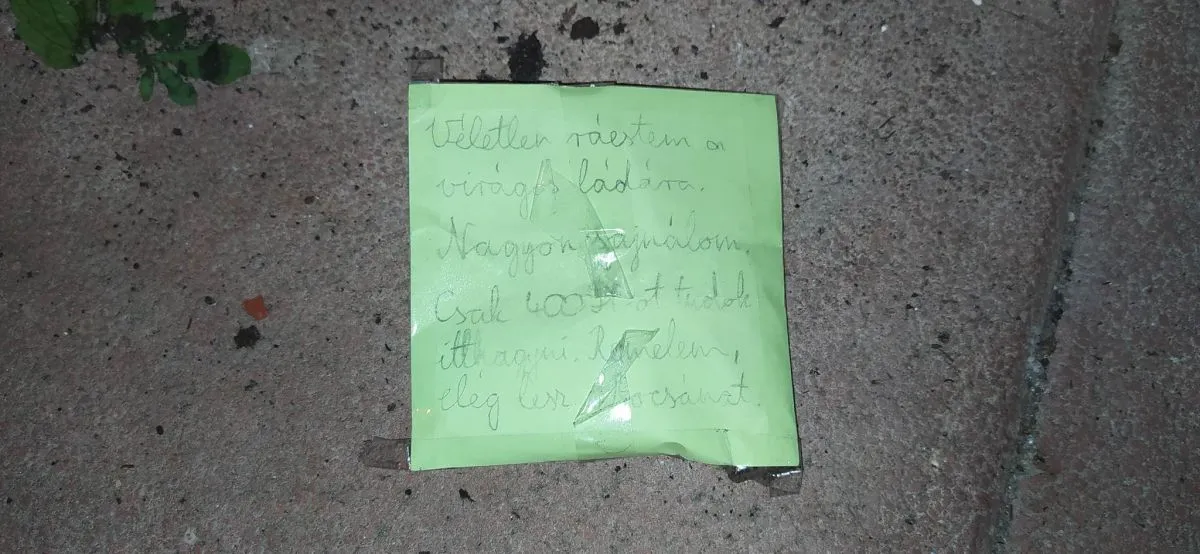 Véletlen ráestem a
virágos ládára.
Nagyon sajnálom.
Csak 400 Ft-ot tudok
itthagyni. Remélem,
elég lesz. Bocsánat.